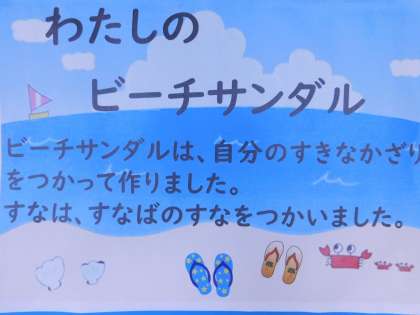 わたしの
ビーチサンダル
ビーチサンダルは、自分のすきなかざり
をつかって作りました。
すなは、すなばのすなをつかいました。